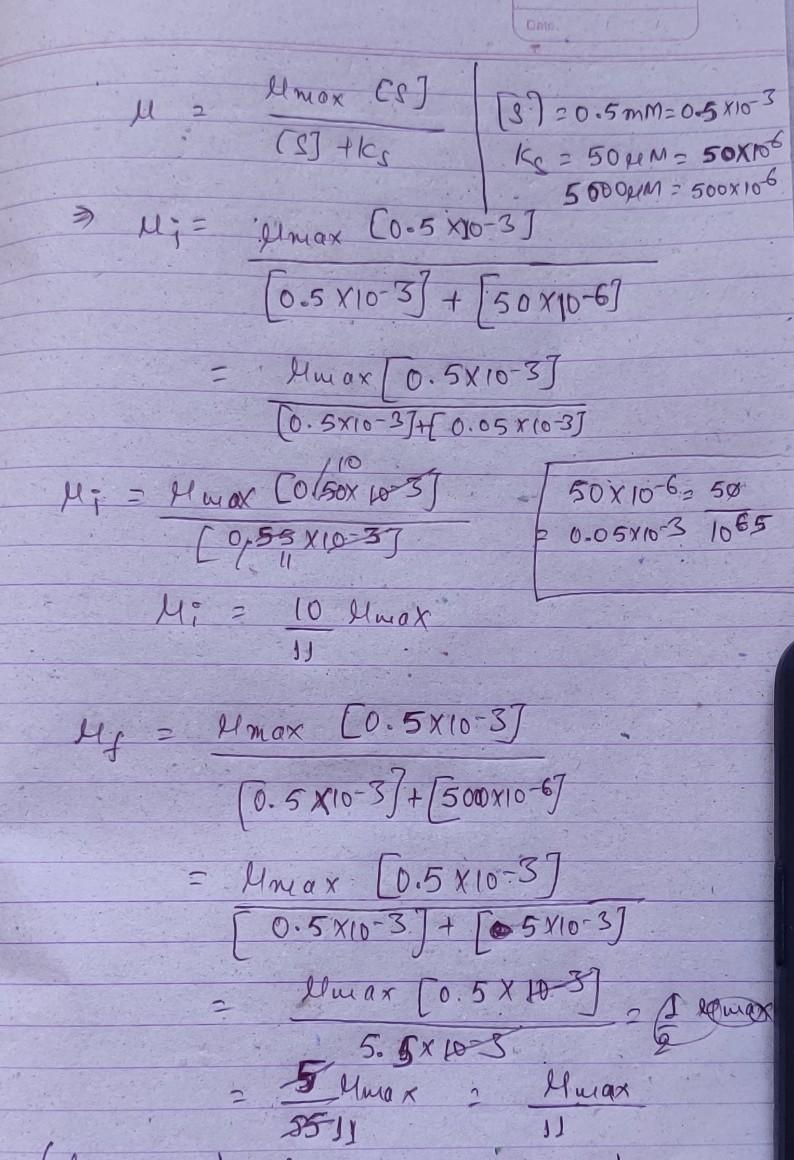 Date.
μ = μmax [S] / [S] + Ks
[S] = 0.5mM = 0.5×10-3
Ks = 50μM = 50×10-6
5000μM = 500×10-6
⇒ μi = μmax [0.5×10-3] / [0.5×10-3] + [50×10-6]
= μmax [0.5×10-3] / [0.5×10-3] + [0.05×10-3]
μi = μmax [0.50×10-3] 10 / [0.55×10-3] 11
50×10-6 = 50 / 10 6 5
= 0.05×10-3
μi = 10/11 μmax
μf = μmax [0.5×10-3] / [0.5×10-3] + [500×10-6]
= μmax [0.5×10-3] / [0.5×10-3] + [5×10-3]
= μmax [0.5×10-3] / 5.5×10-3 = 1/2 μmax
= 5/55 11 μmax = μmax / 11